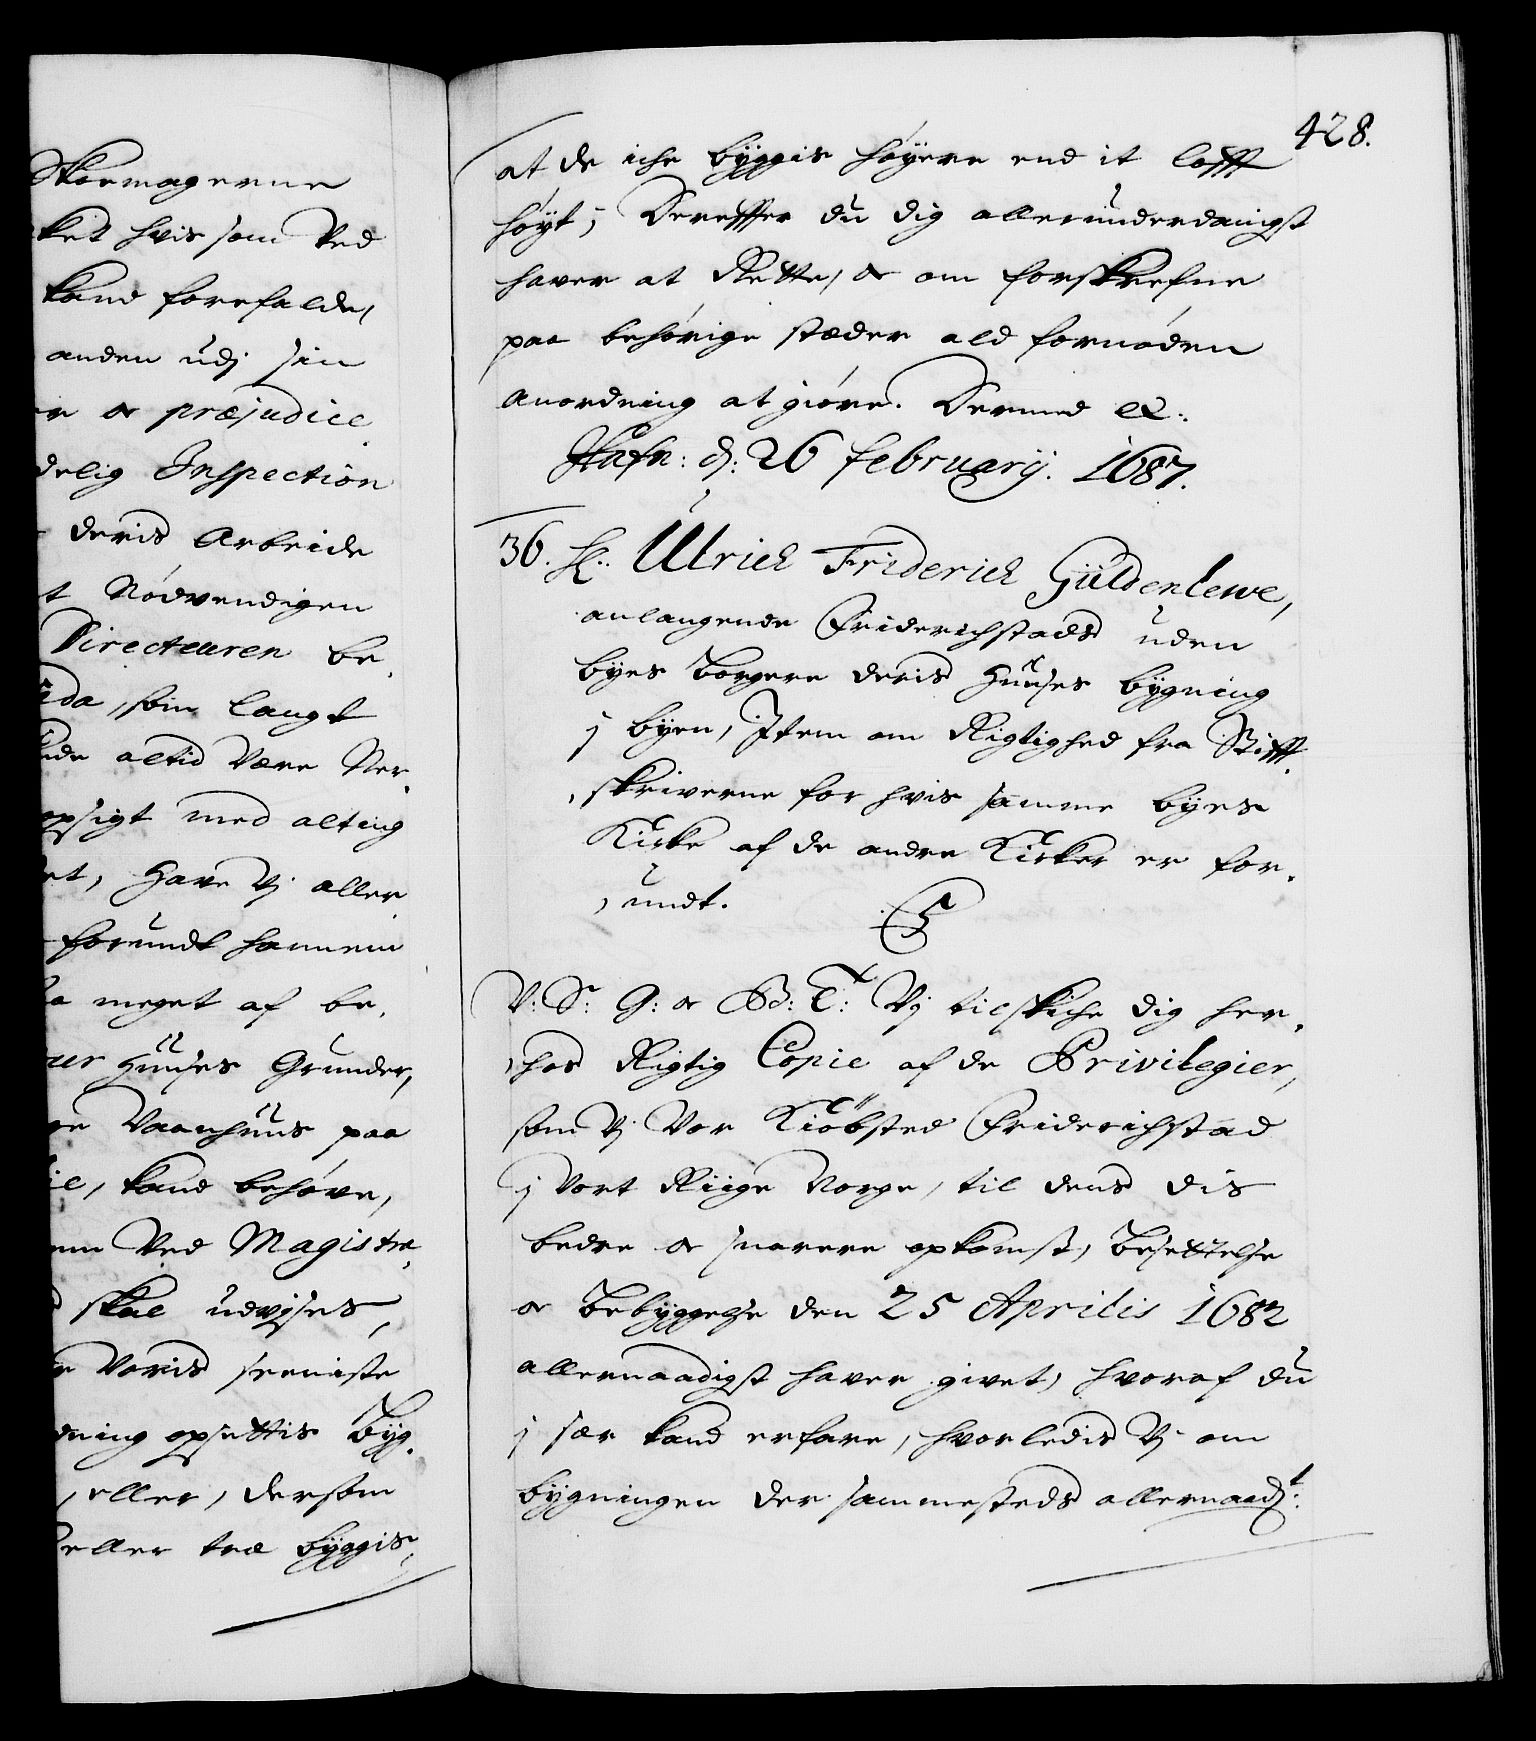 Skoemagerne
ket hvis som Ved
kand forefalde,
anden udj sin
er & præjudice
delig Inspection
deris Arbeide
t Nödvendigen
Directeuren be,
da, som langt
nde altid Være Ner,
opsigt med alting
et, Have Vj aller
forundt hannem
a meget af be,
ur Huuses Grunder,
ge Vaanhuus paa
ie, kand behøve,
nem Ved Magistra,
skal udvjses,
r Voris seeniste
dning opsettis Byg,
, eller, dersom
eller træ byggis,
428.
at de iche byggis høyere end it lofft
høyt; Dereffter du dig allerunderdanigst
haver at Rette, & om forskrefne
paa behørige stæder ald fornøden
Anordning at giøre. Dermed &c:
Hafn: d: 26 february. 1687.
36. H.. Ulrich Friderich Güldenlewe,
anlangende Friderichstads uden
byes Borgere deris Huuses bygning
j byen, Item om Rigtighed fra Stifft,
,skriverne for hvis samme byes
Kirke af de andre Kirker er for,
,undt.
C5
V: S: G: & B: T: Vj tilskiche dig her,
,hos Rigtig Copie af de Privilegier,
som Vj Vor Kiöbsted Friderichstad
j Vort Riige Norge, til dens dis
bedre & snarere opkomst, Besettelse
& Bebyggelse den 25 Aprilis 1682
allernaadigst haver givet, hvoraf du
j sær kand erfare, hvorledis Vj om
bygningen der sammesteds allernaadt: